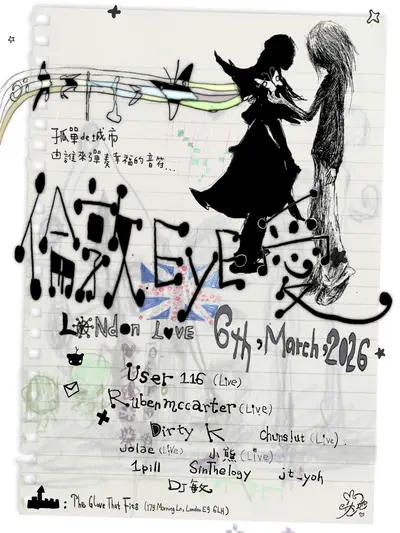 孤單de城市
由誰來彈奏幸福的音符...
Eye
London Love 6th, March, 2026
User 116 (Live)
Rubenmccarter (Live)
Dirty K chunslut (Live).
jolae (Live) 小熊 (Live)
1pill SinThelogy jt_yoh
DJ敏
: The Glove That Fits (179 Morning Ln, London E9 6LH)